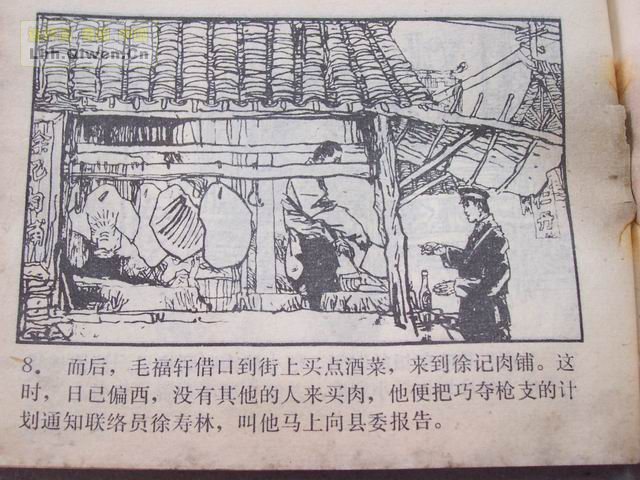 Lhh.QiWen.Cn
徐记肉铺
8. 而后，毛福轩借口到街上买点酒菜，来到徐记肉铺。这
时，日已偏西，没有其他的人来买肉，他便把巧夺枪支的计
划通知联络员徐寿林，叫他马上向县委报告。